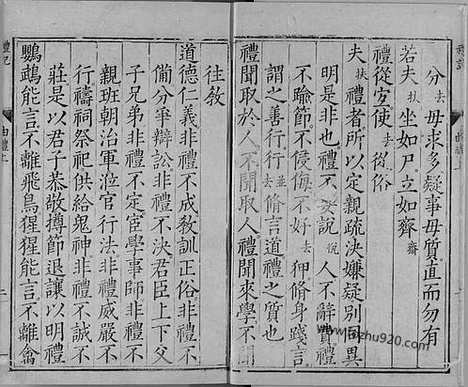 分去毋求多疑事毋質直而勿有
若夫扶坐如尸立如齊齋
禮從宜使去從俗
夫扶禮者所以定親疏決嫌疑別同異
明是非也禮不妄說悅人不辭費禮
不踰節不侵侮不好去狎脩身踐言
謂之善行行脩言道禮之質也
禮聞取於人不聞取人禮聞來學不聞
往敎
道德仁義非禮不成敎訓正俗非禮不
備分爭辯訟非禮不決君臣上下父
子兄弟非禮不定宦學事師非禮不
親班朝治軍涖官行法非禮威嚴不
行禱祠祭祀供給鬼神非禮不誠不
莊是以君子恭敬撙節退讓以明禮
鸚鵡能言不離飛鳥猩猩能言不離禽
禮記
曲禮上